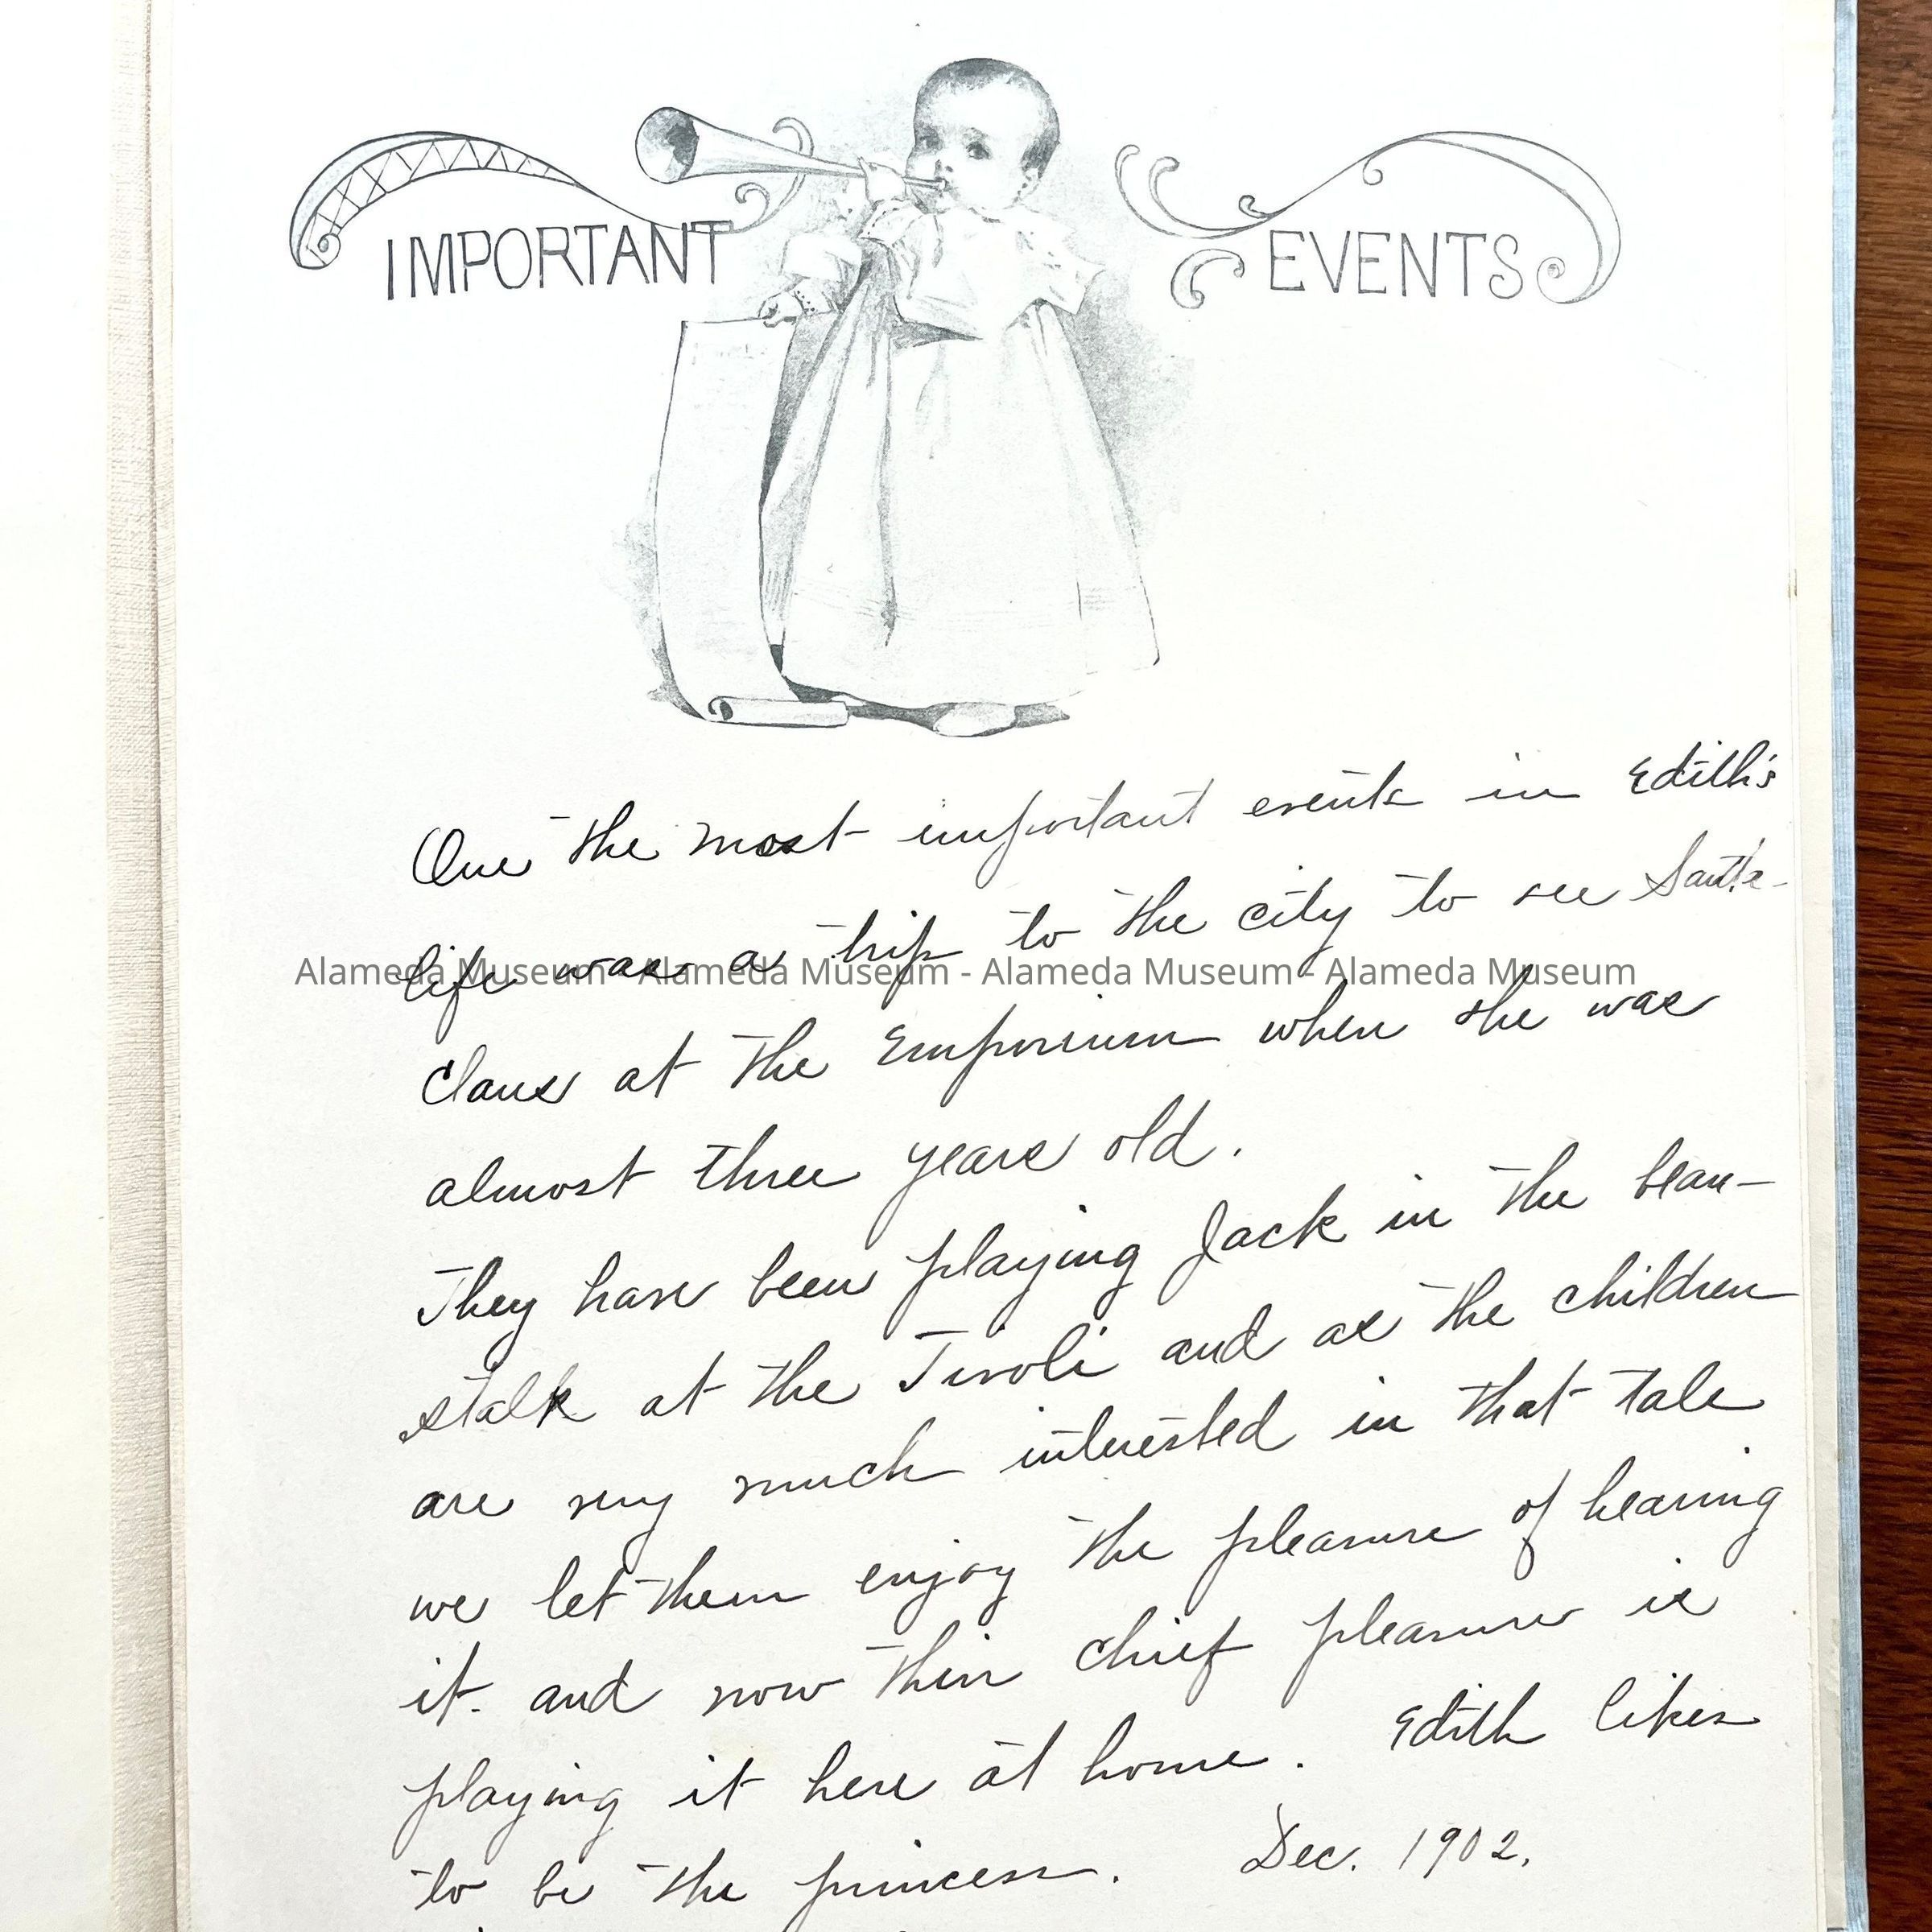 IMPORTANT EVENTS
One the most important events in Edith's
life was a trip to the city to see Santa-
Alameda Museum - Alameda Museum - Alameda Museum - Alameda Museum
Claus at the Emporium when she was
almost three years old.
They have been playing Jack in the bean-
stalk at the Tivoli and as the children
are very much interested in that tale
we let them enjoy the pleasure of hearing
it. and now their chief pleasure is
playing it here at home. Edith likes
to be the princess. Dec. 1902.